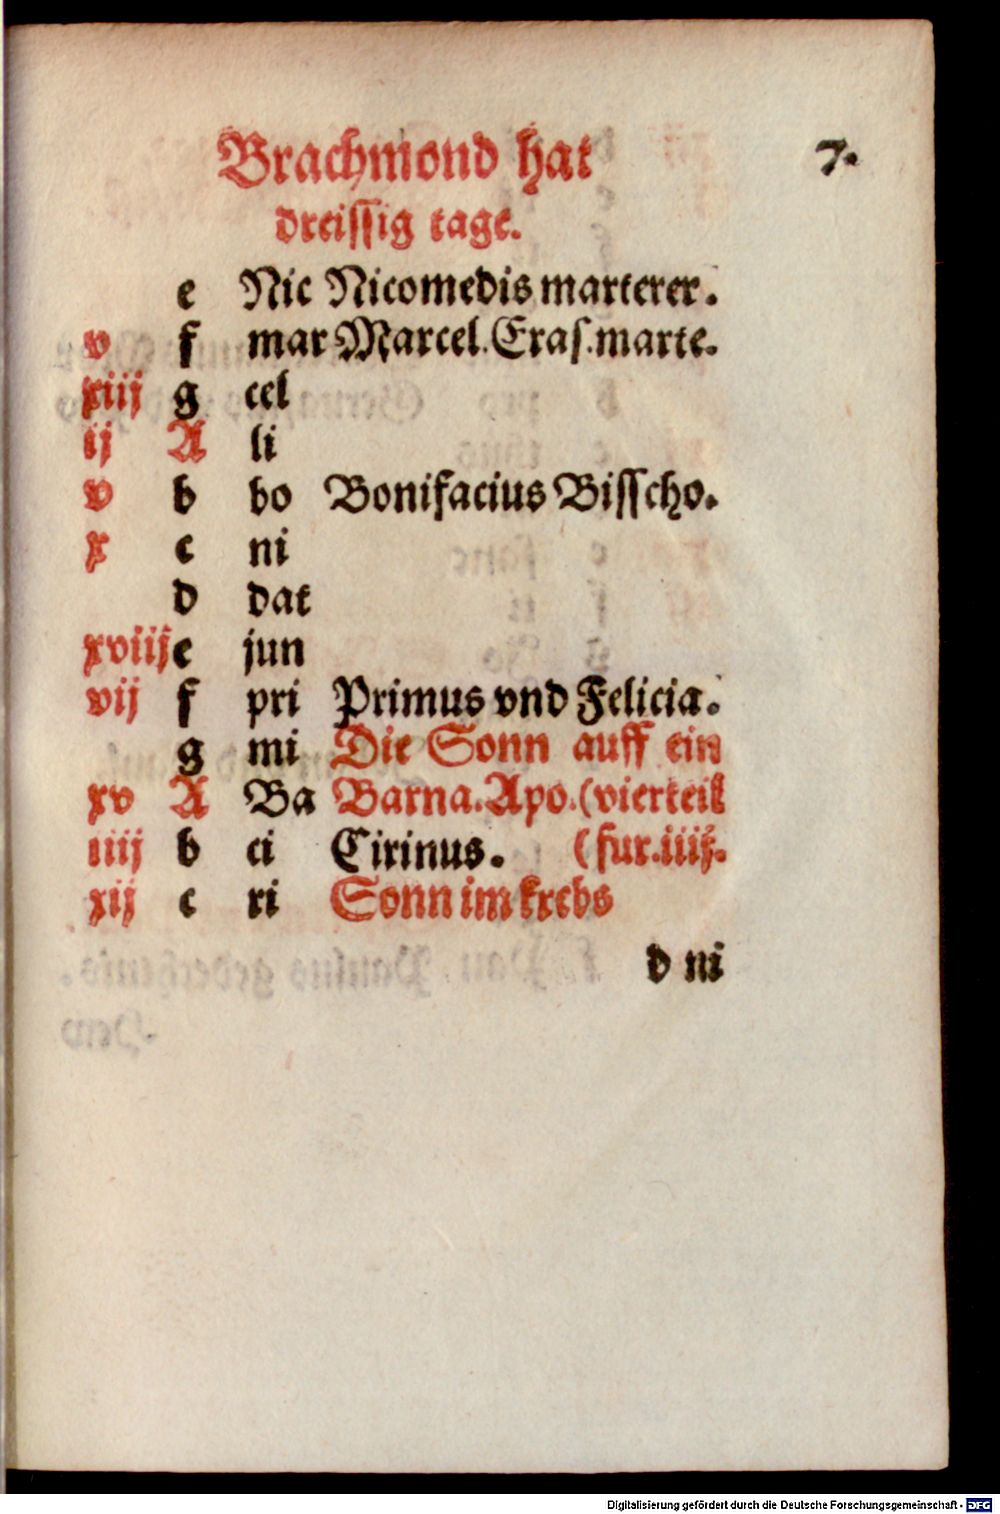 Brachmond hat
7.
dreissig tage.
e Nic Nicomedis marterer.
v f mar Marcel. Eras. marte.
xiij g cel
ij A li
v b bo Bonifacius Bisscho.
x c ni
d dat
xviij e jun
vij f pri Primus vnd Felicia.
g mi Die Sonn auff ein
xv A Ba Barna. Apo. (vierteil
iiij b ci Cirinus. (fur. iiij.
xij c ri Sonn im krebs
d ni
Digitalisierung gefördert durch die Deutsche Forschungsgemeinschaft - DFG